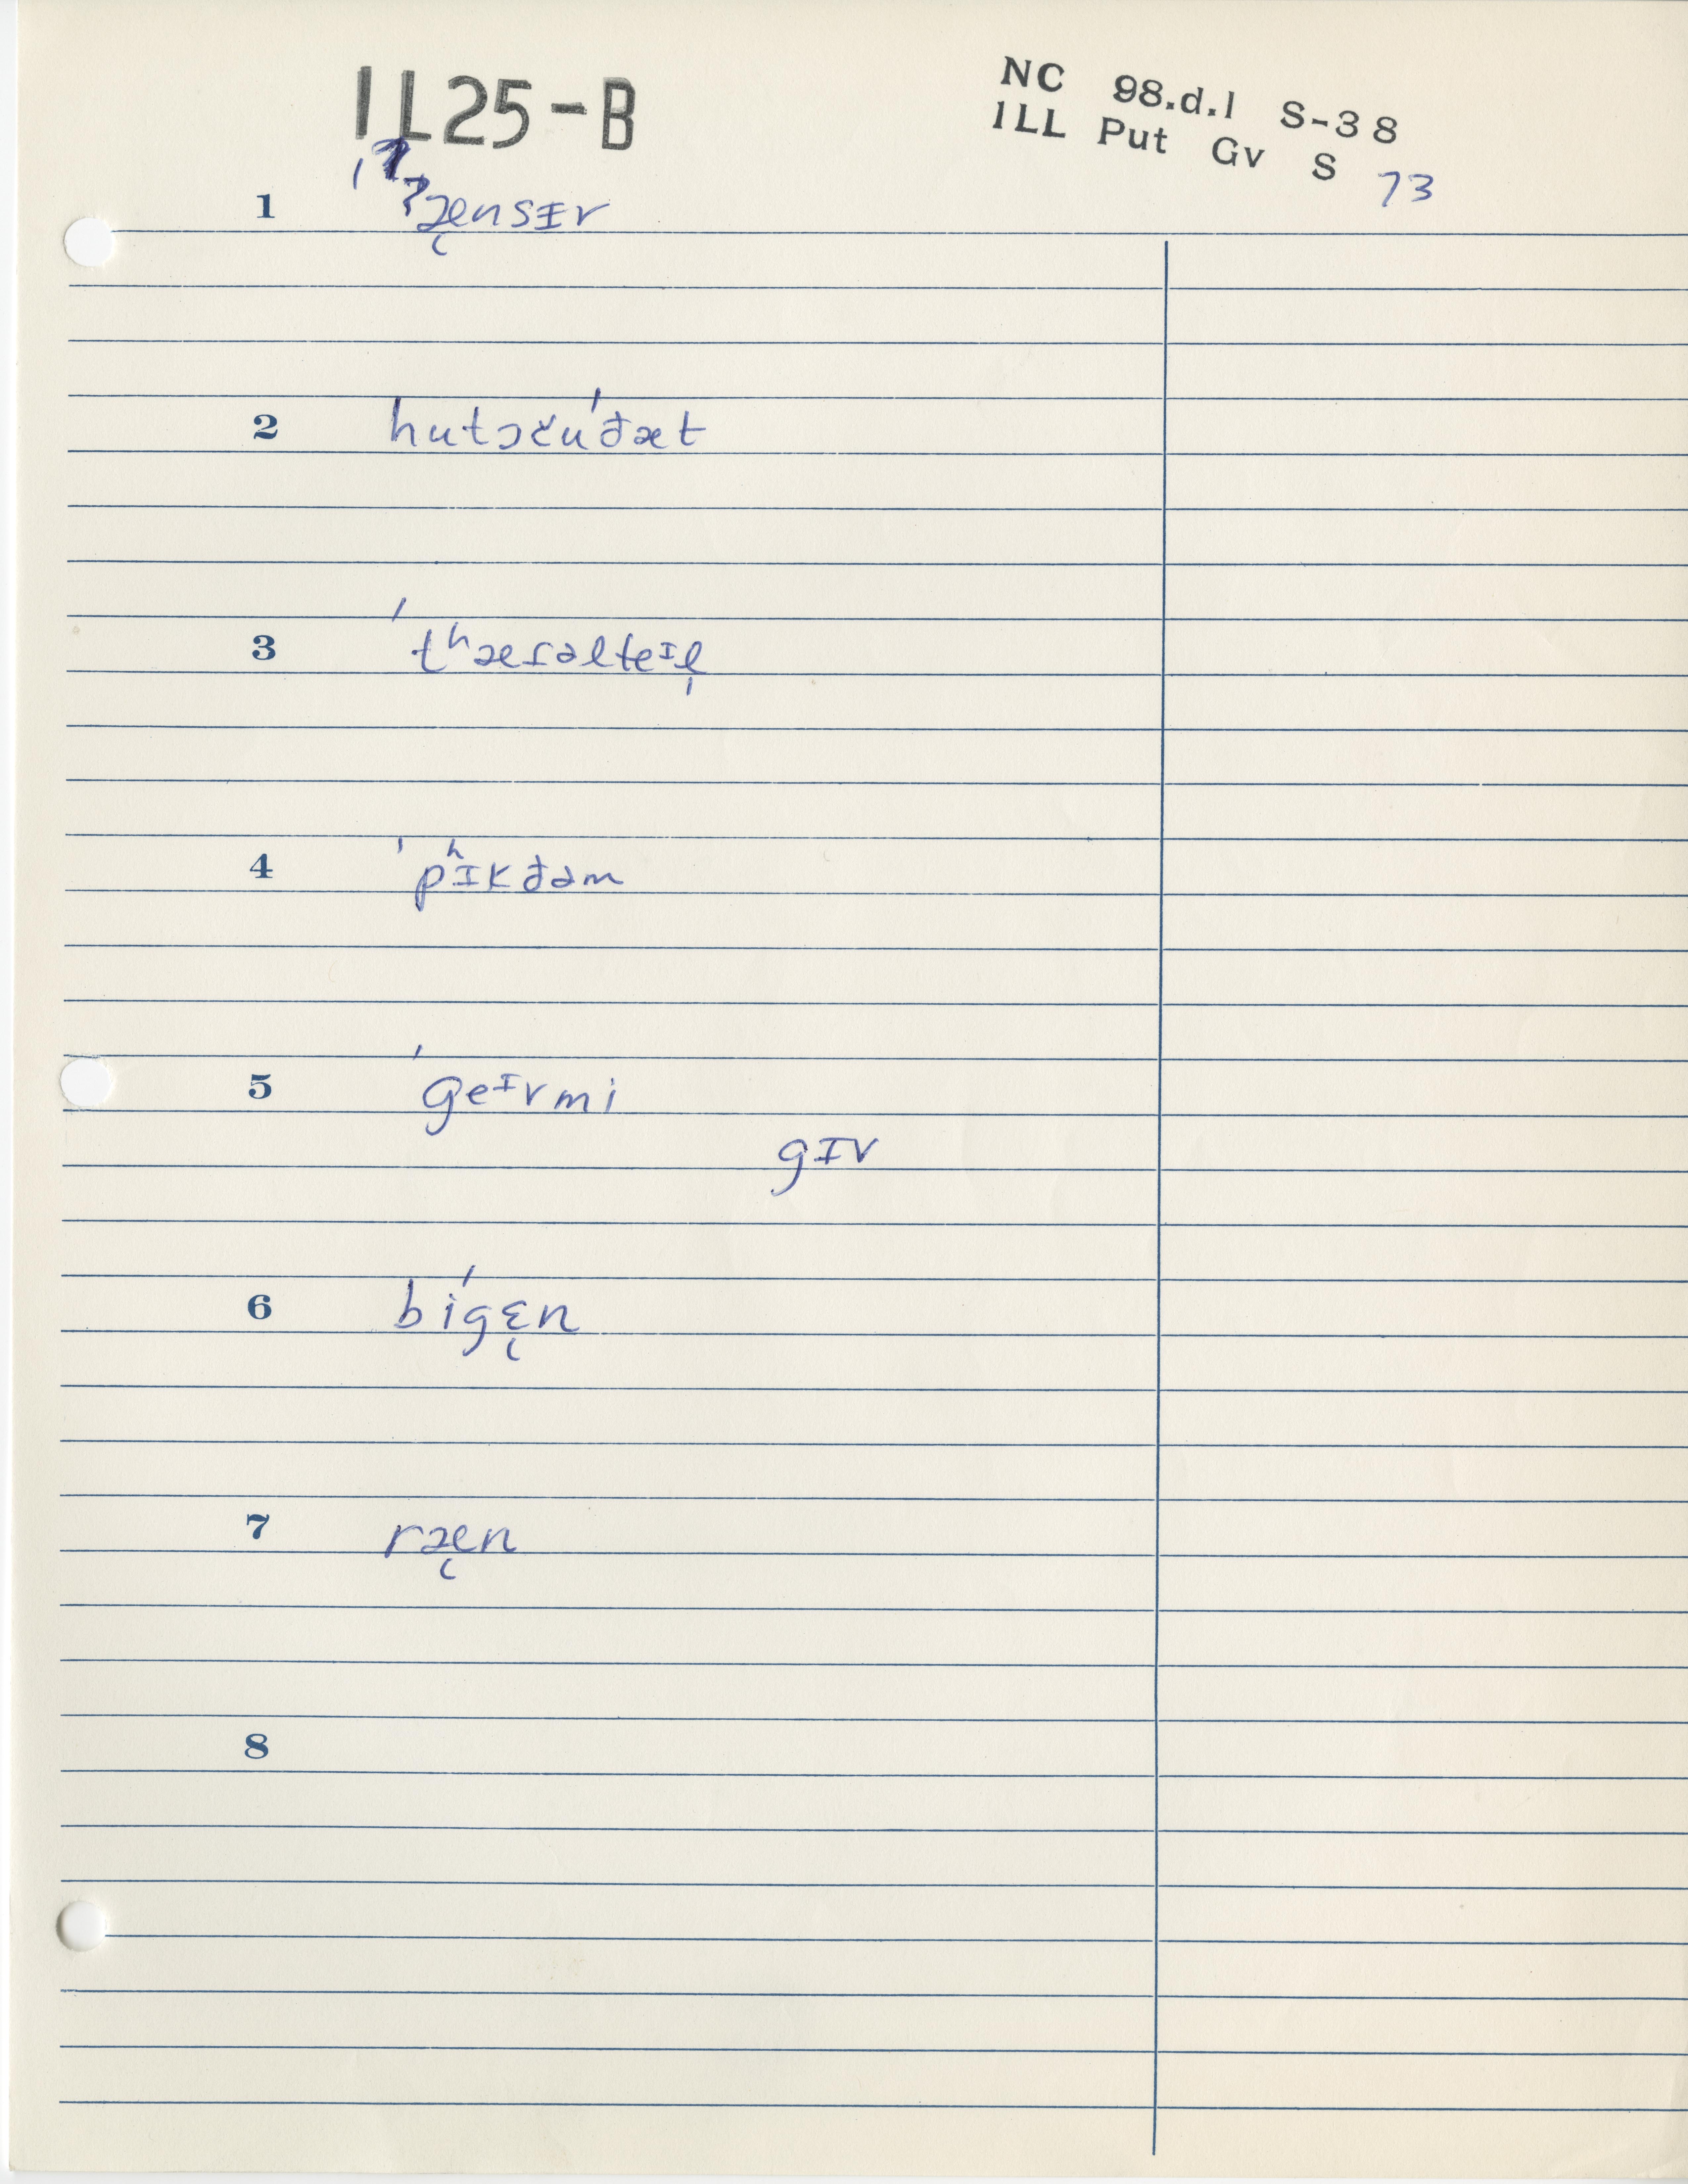 1L25-B
NC 98.d.1 S-38
ILL Put Gv S 73
1 ˈʔæ̜nsɪr
2 hutɔčuˈđæt
3 ˈtʰæɾəlteᶦl̩
4 ˈpʰɪkđəm
5 ˈgeᶦvmi
gɪv
6 biˈgɛ̜n
7 ræ̜n
8